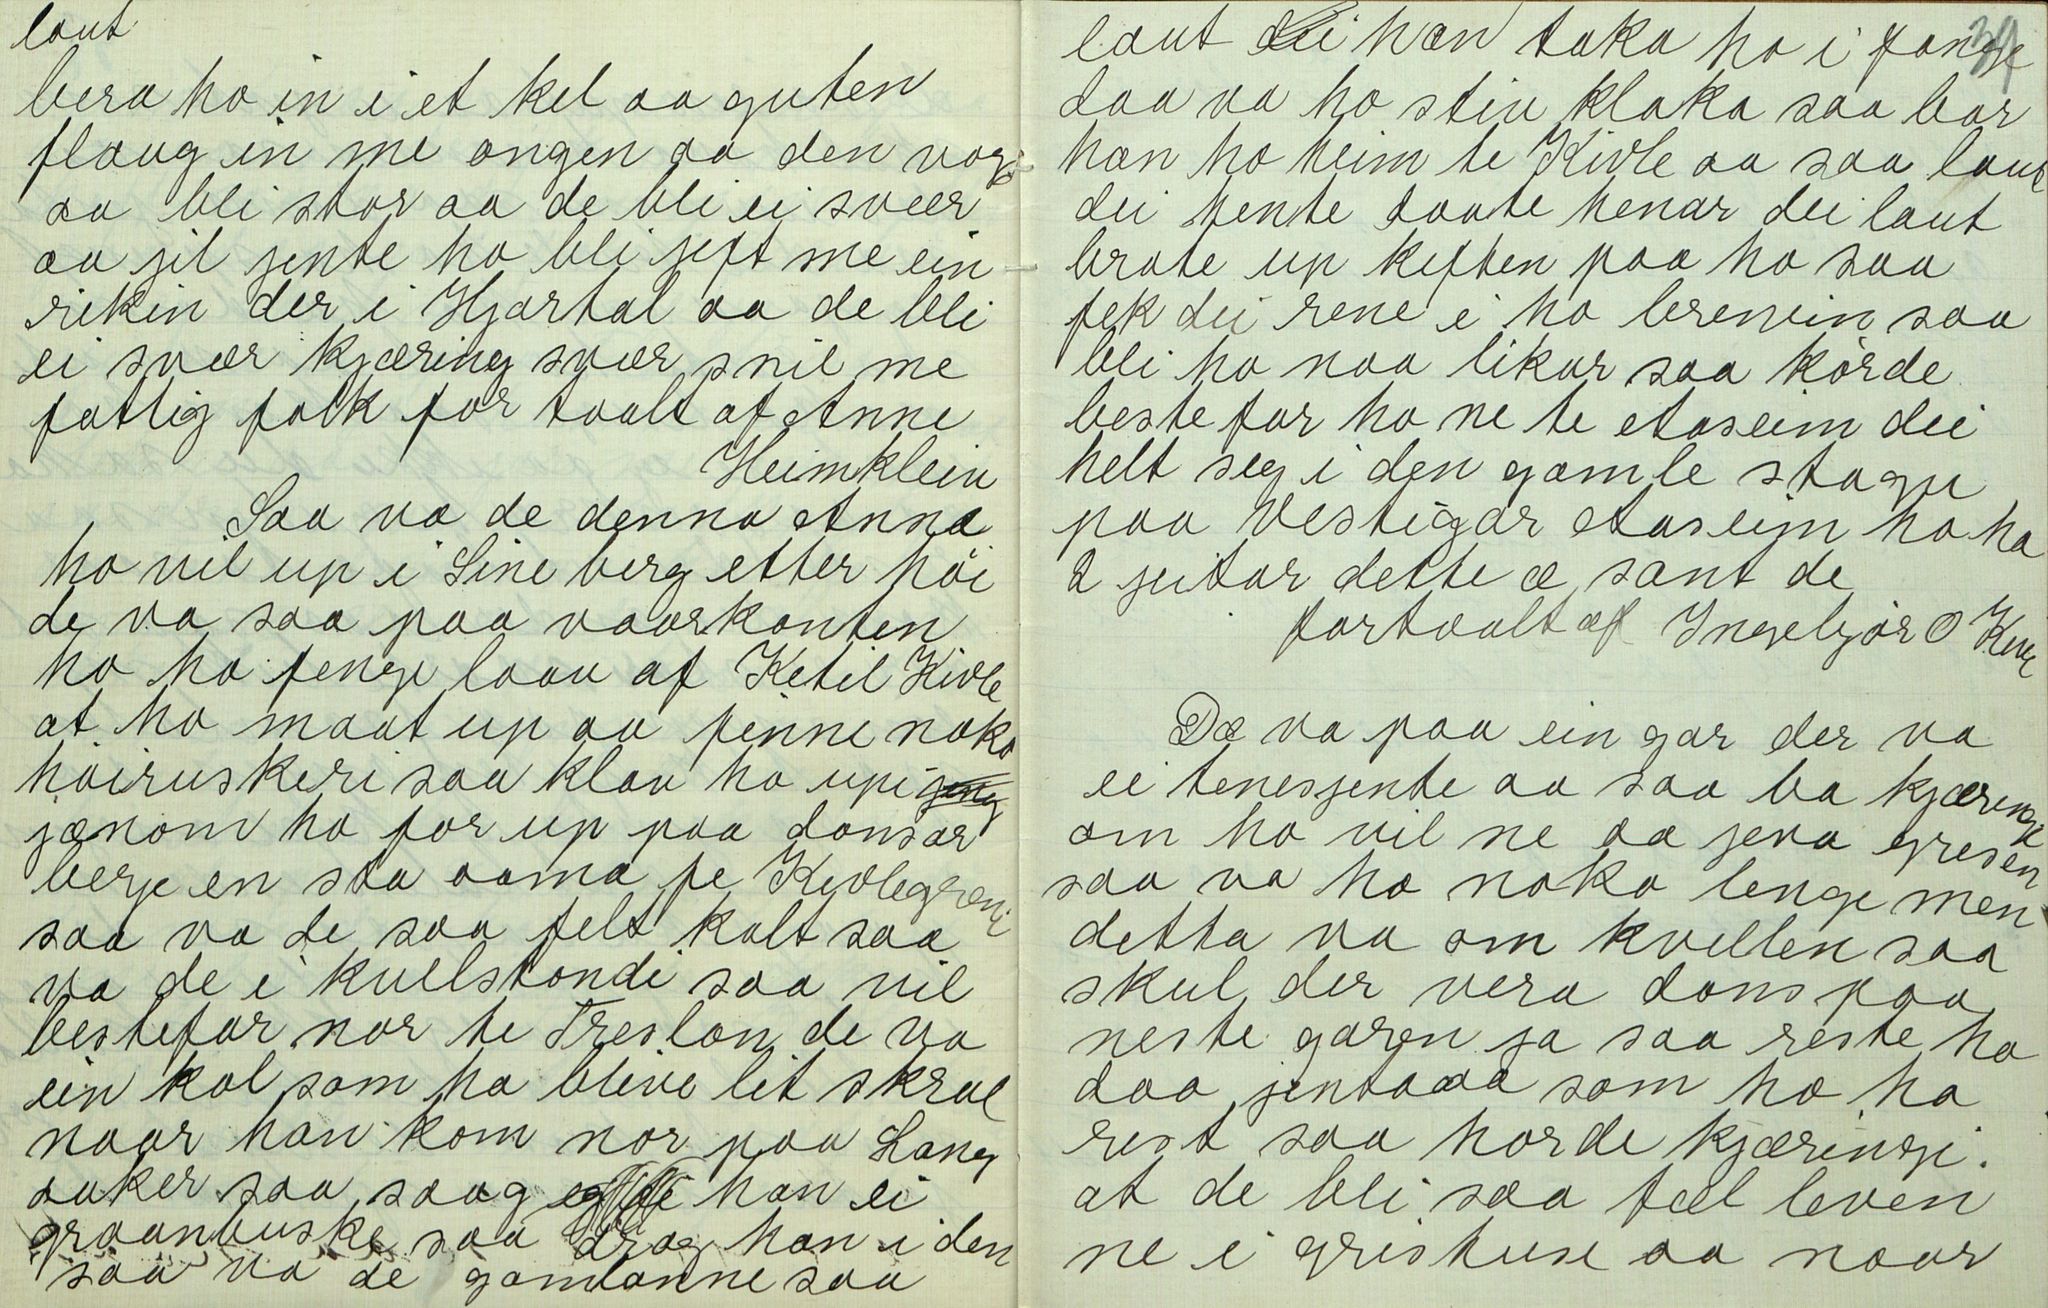 laut
bera ho in i et kel aa guten
flaug in me ongen aa den vogs
aa bli stor aa de bli ei svær
aa jil jente ho bli jeft me ein
rikin der i Hjartal aa de bli
ei svær kjæring svær snil me
fattig folk for taalt af Anne
Heimklein
Saa va de denna Anna
ho vil up i Line berg etter höi
de va saa paa vaarkanten
ho ha fenge laav af Ketil Kivle
at ho maat up aa finne noko
höiruskeri saa klav ho up i
jænom ho for up paa donsar
berje en staa aama fe Kivlegreni
saa va de saa felt kalt saa
va de i kvellstondi saa vil
bestefar nor te Treslon de va
ein kal som ha blive lit skral
naar han kom nor paa Lang
aaker saa saag han ei
graanbuske saa drog han i den
saa va de gamlanne saa
34
laut dei han taka ho i fange
daa va ho stin klaka saa bar
han ho heim te Kivle aa saa laut
dei hente taate henar dei laut
brote up keften paa ho saa
fek dei rene i ho brenvin saa
bli ho naa likar saa körde
bestefar ho ne te Aaseim dei
helt seg i den gamle stagu
paa Vestigar Aaseim ho ha
2 jeitar dette æ sant de
fortaalt af Ingebjør O Kivle
Dæ va paa ein gar der va
ei tenesjente aa saa ba kjæringi
om ho vil ne aa jeva grisen
saa va ho noko lenge men
detta va om kvellen saa
skul der vera dons paa
neste garen ja saa reste ho
daa jenta aa som ho ha
rest saa horde kjæringi.
at de bli saa fæl leven
ne i grishuse aa naar